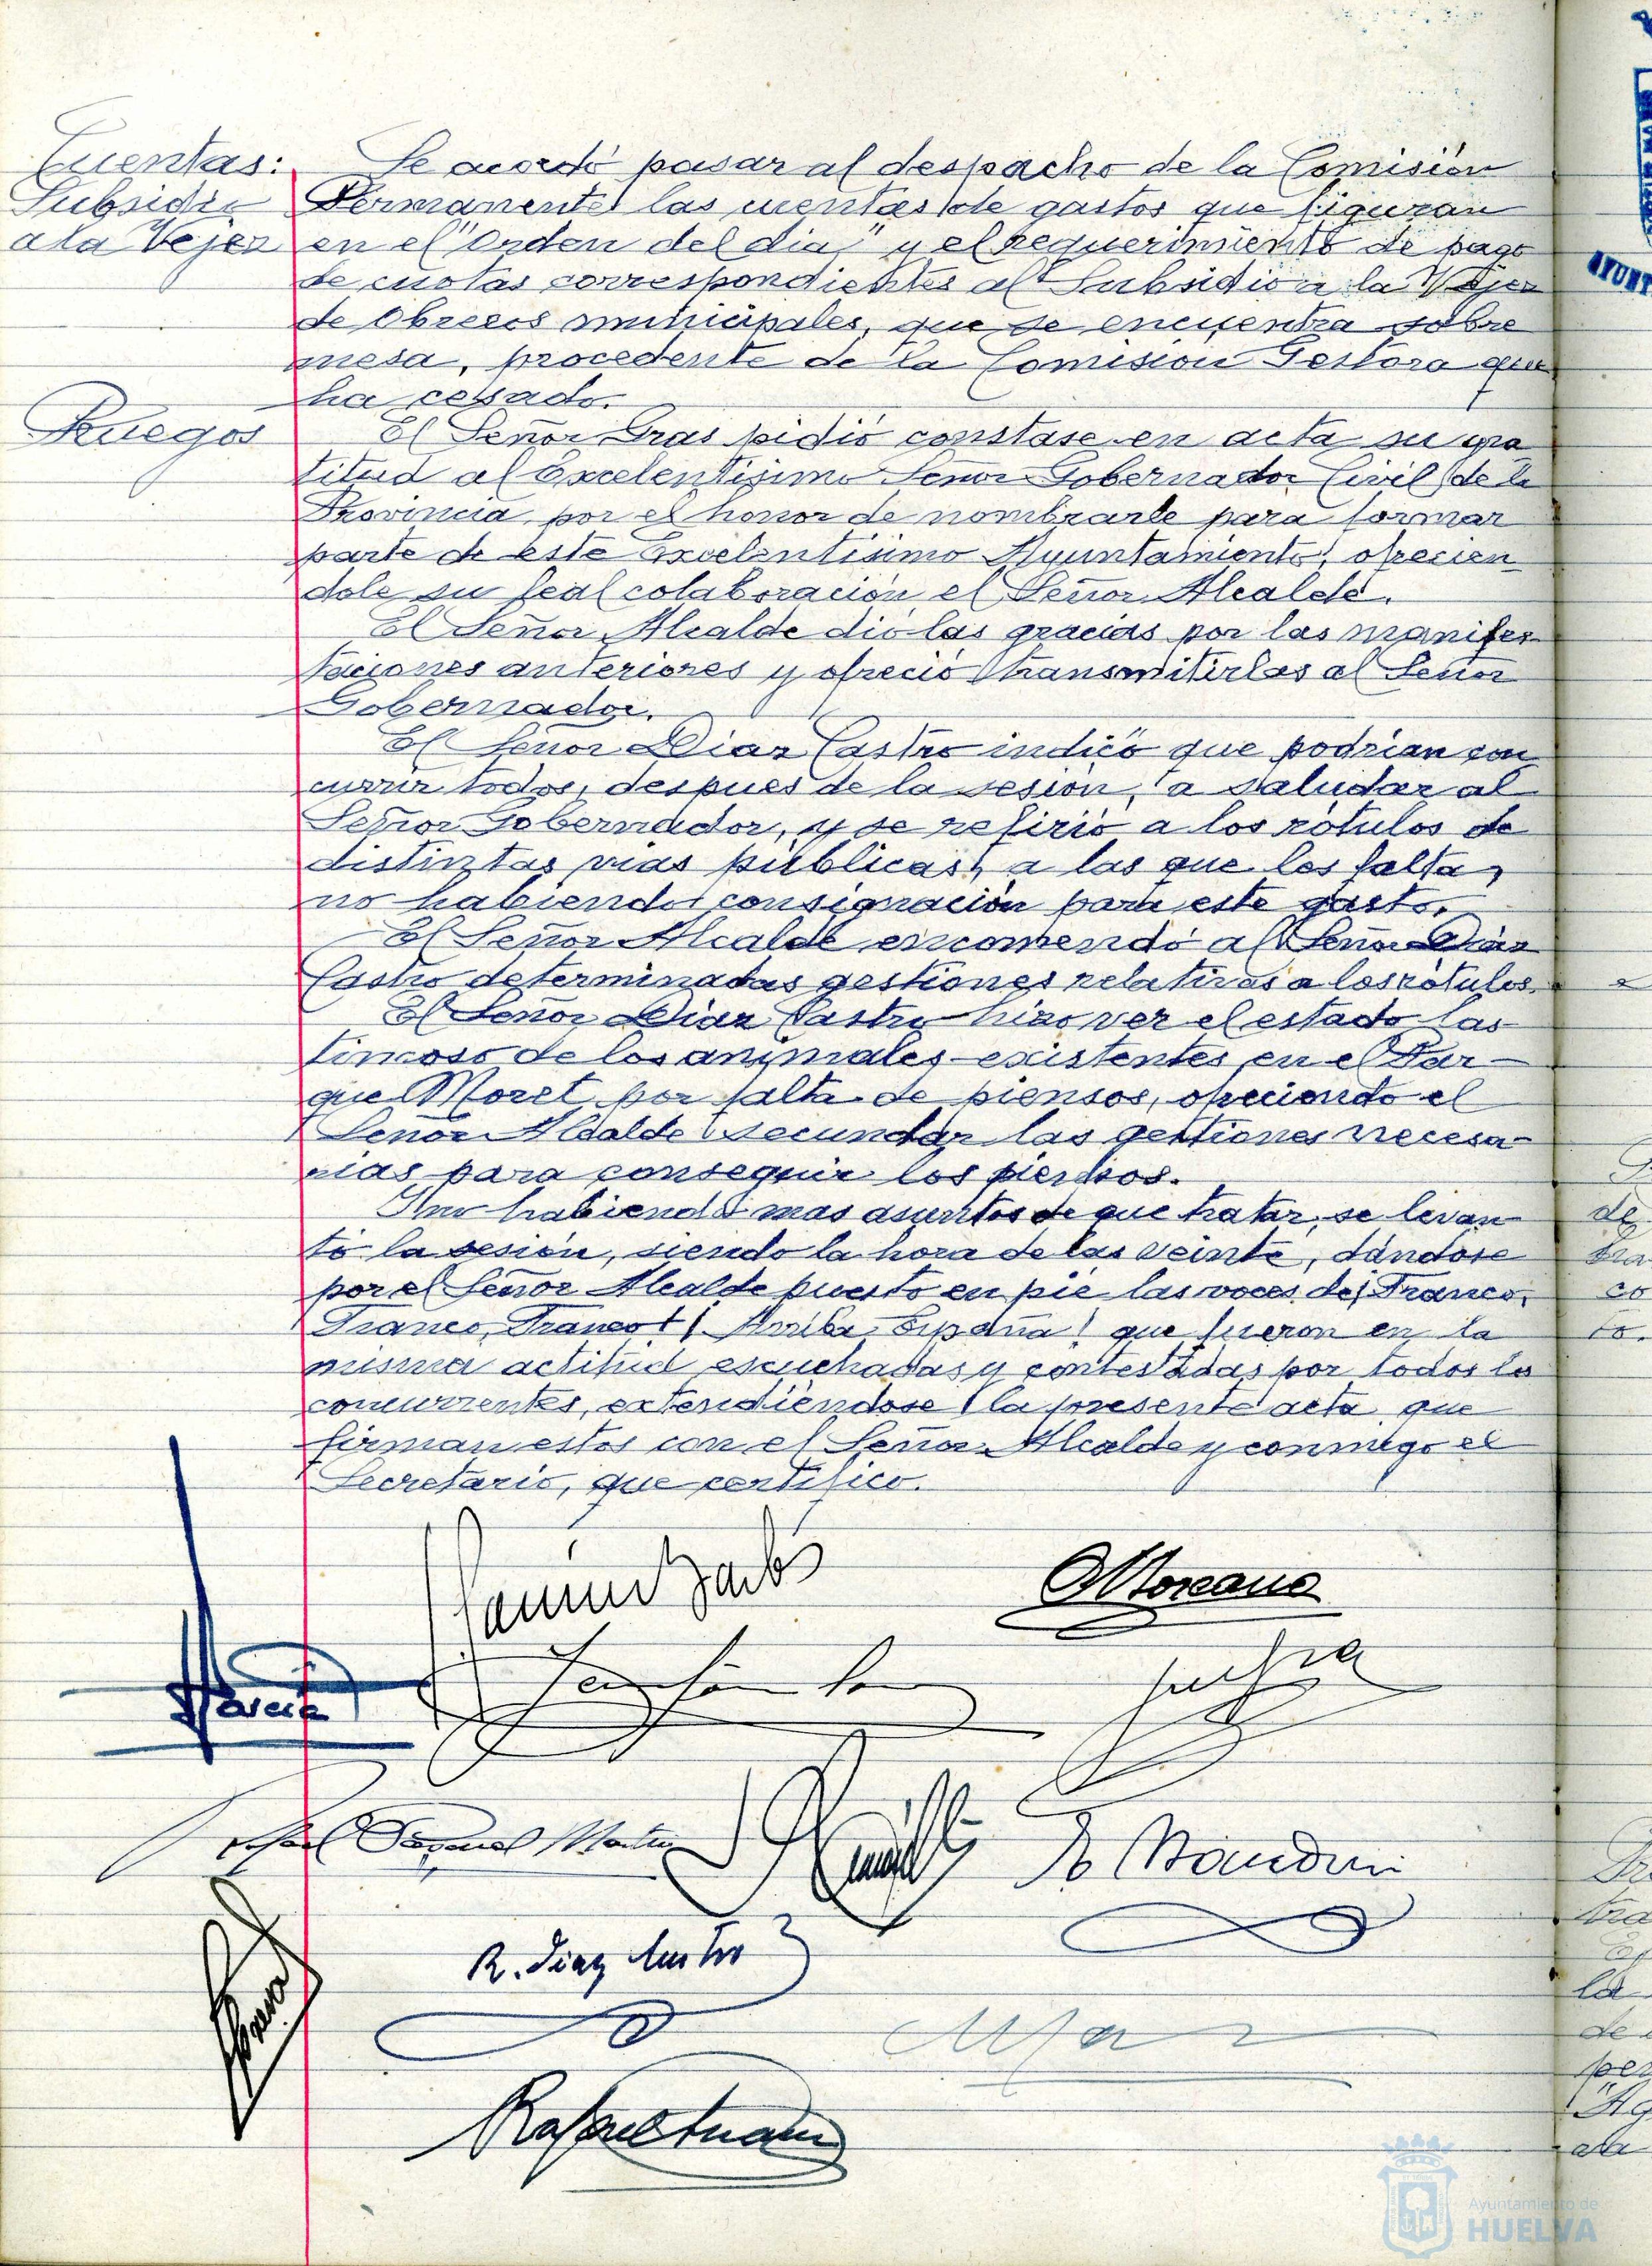 Cuentas:
Subsidio
a la Vejez
Se acordó pasar al despacho de la Comisión
Permanente las cuentas de gastos que figuran
en el "Orden del dia," y el requerimiento de pago
de cuotas correspondientes al Subsidio a la Vejez
de Obreros municipales, que se encuentra sobre
mesa, procedente de la Comision Gestora que
ha cesado.
Ruegos
El Señor Gras pidió constase en acta su gra
titud al Excelentisimo Señor Gobernador Civil de la
Provincia, por el honor de nombrarle para formar
parte de este Excelentísimo Ayuntamiento, ofrecien
dole su leal colaboración el Señor Alcalde.
El Señor Alcalde dió las gracias por las manifes
taciones anteriores y ofreció transmitirlas al Señor
Gobernador.
El Señor Diaz Castro indicó que podrian con
currir todos, despues de la sesión, a saludar al
Señor Gobernador, y se refirió a los rótulos de
distintas vias públicas, a las que les falta,
no habiendo consignación para este gasto.
El Señor Alcalde encomendó al Señor Diaz
Castro determinadas gestiones relativas a los rótulos.
El Señor Diaz Castro hizo ver el estado las
timoso de los animales existentes en el Par-
que Moret por falta de piensos, ofreciendo el
Señor Alcalde secundar las gestiones necesa-
rias para conseguir los piensos.
Y no habiendo mas asuntos de que tratar, se levan
tó la sesión, siendo la hora de las veinte, dándose
por el Señor Alcalde puesto en pie las voces de ¡Franco,
Franco, Franco! ¡Arriba España! que fueron en la
misma actitud escuchadas y contestadas por todos los
concurrentes, extendiéndose la presente acta que
firman estos con el Señor Alcalde y conmigo el
Secretario, que certifico.
Moreano
García
Rafael Martin
R. Diaz Castro
Ayuntamiento de
HUELVA